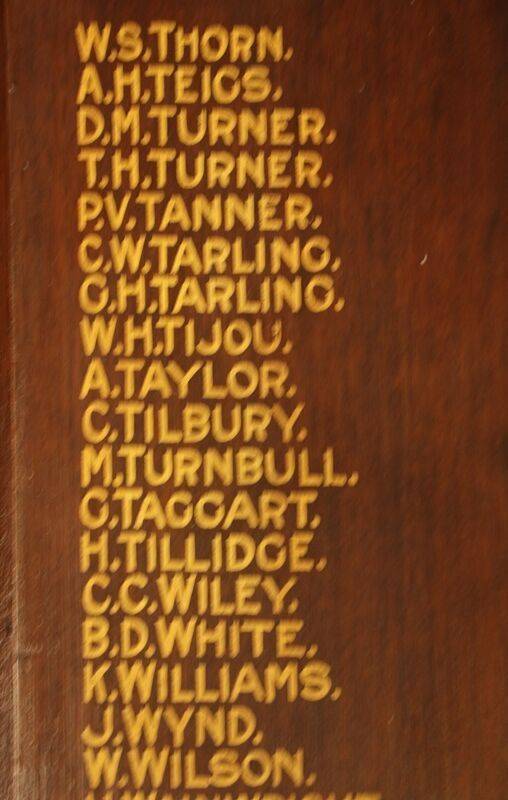 W.S.THORN.
A.H.TEIGS.
D.M.TURNER.
T.H.TURNER.
P.V.TANNER.
C.W.TARLING.
G.H.TARLING.
W.H.TIJOU.
A.TAYLOR.
C.TILBURY.
M.TURNBULL.
G.TAGGART.
H.TILLIDGE.
C.C.WILEY.
B.D.WHITE.
K.WILLIAMS.
J.WYND.
W.WILSON.